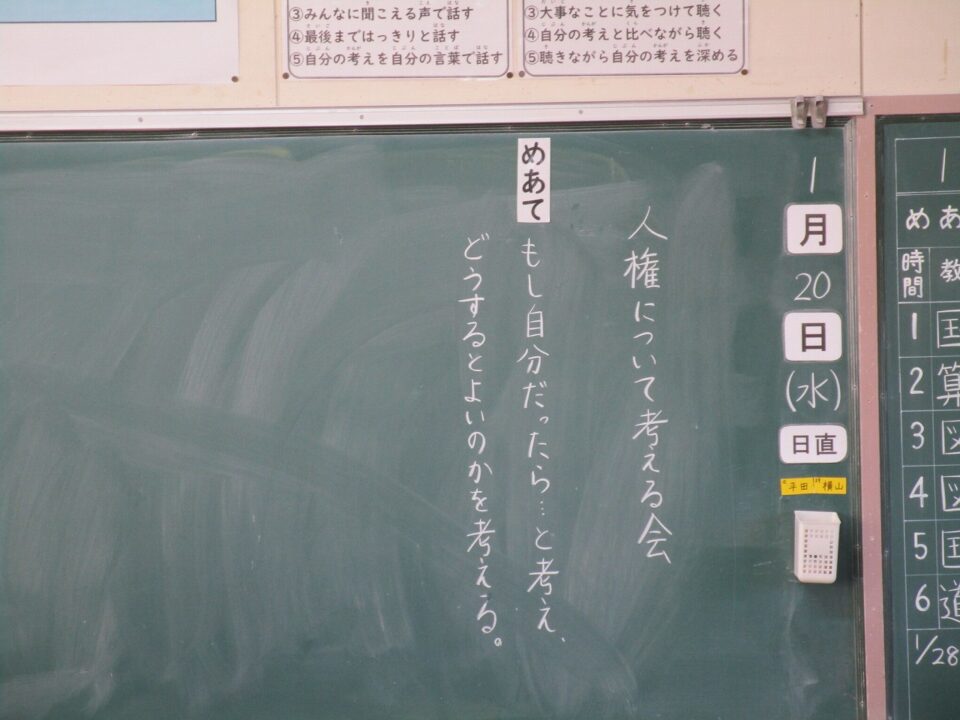 ③みんなに聞こえる声で話す
④最後まではっきりと話す
⑤自分の考えを自分の言葉で話す
③大事なことに気をつけて聴く
④自分の考えと比べながら聴く
⑤聴きながら自分の考えを深める
1月20日(水)
日直
平田 横山
人権について考える会
めあて
もし自分だったら…と考え、
どうするとよいのかを考える。
1
めあ
時間 教
1 国
2 算
3 図
4 図
5 国
6 道
1/28